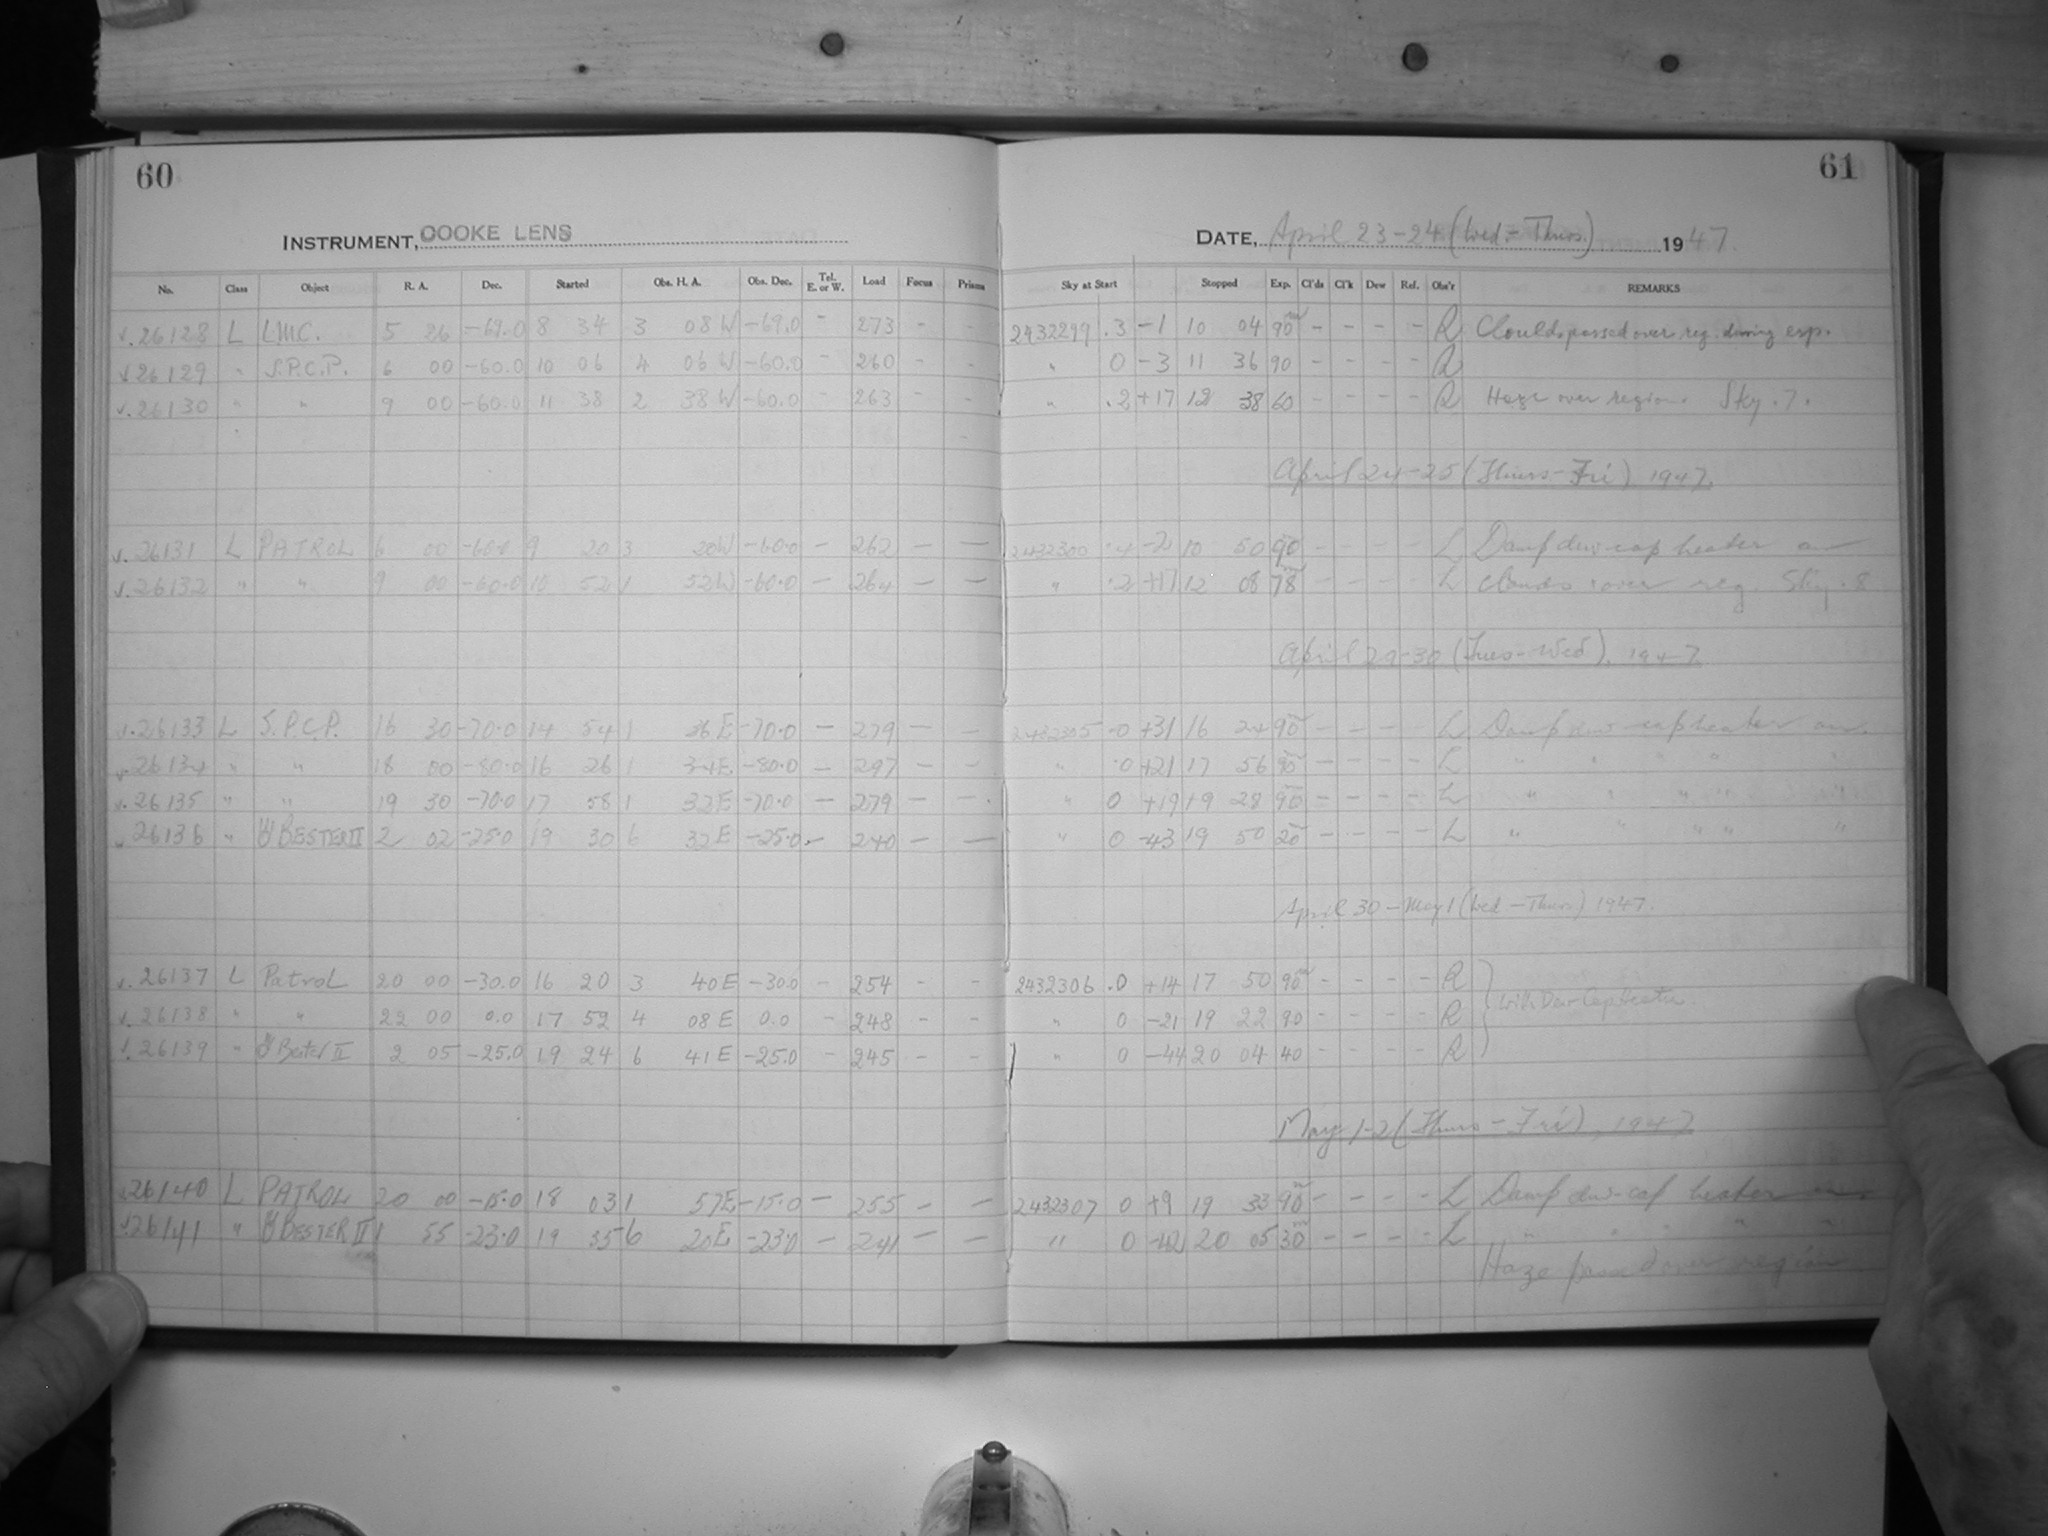 60
INSTRUMENT, COOKE LENS
No. Class Object R. A. Dec. Started Obs. H. A. Obs. Dec. Tel. E. or W. Load Focus Prisms
26128 L LMC. 5 26 -69.0 8 34 3 08 W -69.0 - 273 - -
26129 " S.P.C.P. 6 00 -60.0 10 06 4 06 W -60.0 - 260 - -
26130 " " 9 00 -60.0 11 38 2 38 W -60.0 - 263 - -
26131 L PATROL 6 00 -60.0 9 20 3 20W -60.0 - 262 - -
26132 " " 9 00 -60.0 10 52 1 52W -60.0 - 264 - -
26133 L S.P.C.P. 16 30 -70.0 14 54 1 36 E -70.0 - 279 - -
26134 " " 18 00 -80.0 16 26 1 34E -80.0 - 297 - -
26135 " " 19 30 -70.0 17 58 1 32E -70.0 - 279 - -
26136 " BESTER II 2 02 -25.0 19 30 6 32 E -25.0 - 240 - -
26137 L Patrol 20 00 -30.0 16 20 3 40 E -30.0 - 254 - -
26138 " " 22 00 0.0 17 52 4 08 E 0.0 - 248 - -
26139 " Bester II 2 05 -25.0 19 24 6 41 E -25.0 - 245 - -
26140 L PATROL 20 00 -15.0 18 03 1 57E -15.0 - 255 - -
26141 " BESTER II 1 55 -23.0 19 35 6 20E -23.0 - 241 - -
61
DATE, April 23-24 (Wed.-Thurs.) 1947.
Sky at Start Stopped Exp. Cl'ds Cl'k Dew Ref. Obs'r REMARKS
2432299 .3 -1 10 04 90m - - - - R Clouds passed over reg. during exp.
" 0 -3 11 36 90 - - - - R
" .2 +17 12 38 60 - - - - R Haze over region. Sky .7.
April 24-25 (Thurs-Fri) 1947.
2432300 .4 -2 10 50 90m - - - - L Damp dew-cap heater on
" .2 +17 12 08 78m - - - - L Clouds over reg. Sky .8
April 29-30 (Tues-Wed). 1947
2432305 .0 +31 16 24 90m - - - - L Damp dew-cap heater on.
" .0 +21 17 56 90m - - - - L " " " " "
" 0 +19 19 28 90m - - - - L " " " " "
" 0 -43 19 50 20m - - - - L " " " " "
April 30-May 1 (Wed-Thurs) 1947.
2432306 .0 +14 17 50 90m - - - - R
" 0 -21 19 22 90 - - - - R With Dew Cap Heater.
" 0 -44 20 04 40 - - - - R
May 1-2 (Thurs-Fri), 1947
2432307 0 +9 19 33 90m - - - - L Damp dew-cap heater on.
" 0 -42 20 05 30m - - - - L " " " " "
Haze passed over region